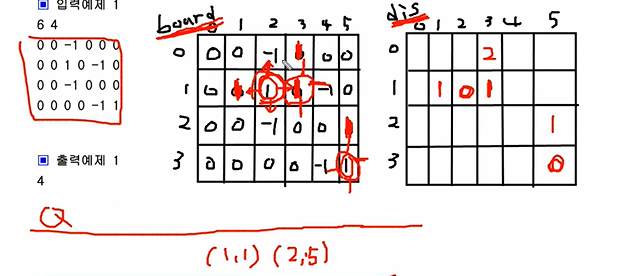 입력예제 1
6 4
0 0 -1 0 0 0
0 0 1 0 -1 0
0 0 -1 0 0 0
0 0 0 0 -1 1
출력예제 1
4
board
1 2 3 4 5
0 0 0 -1 0 0
1 0 1 -1 0
2 0 0 -1 0 0
3 0 0 0 0 -1 1
dis
0 1 2 3 4 5
0 2
1 1 0 1
2 1
3 0
Q
(1,1) (2,5)